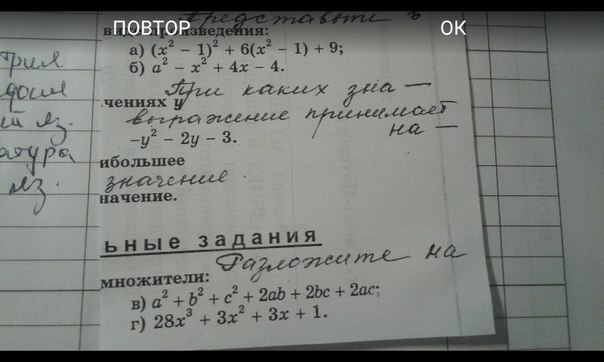 ПОВТОР
ОК
Представьте в
виде произведения:
а) (x² − 1)² + 6(x² − 1) + 9;
б) a² − x² + 4x − 4.
При каких зна —
чениях y
выражение принимает
−y² − 2y − 3.
на —
ибольшее
значение.
начение.
ьные задания
Разложите на
множители:
в) a² + b² + c² + 2ab + 2bc + 2ac;
г) 28x³ + 3x² + 3x + 1.